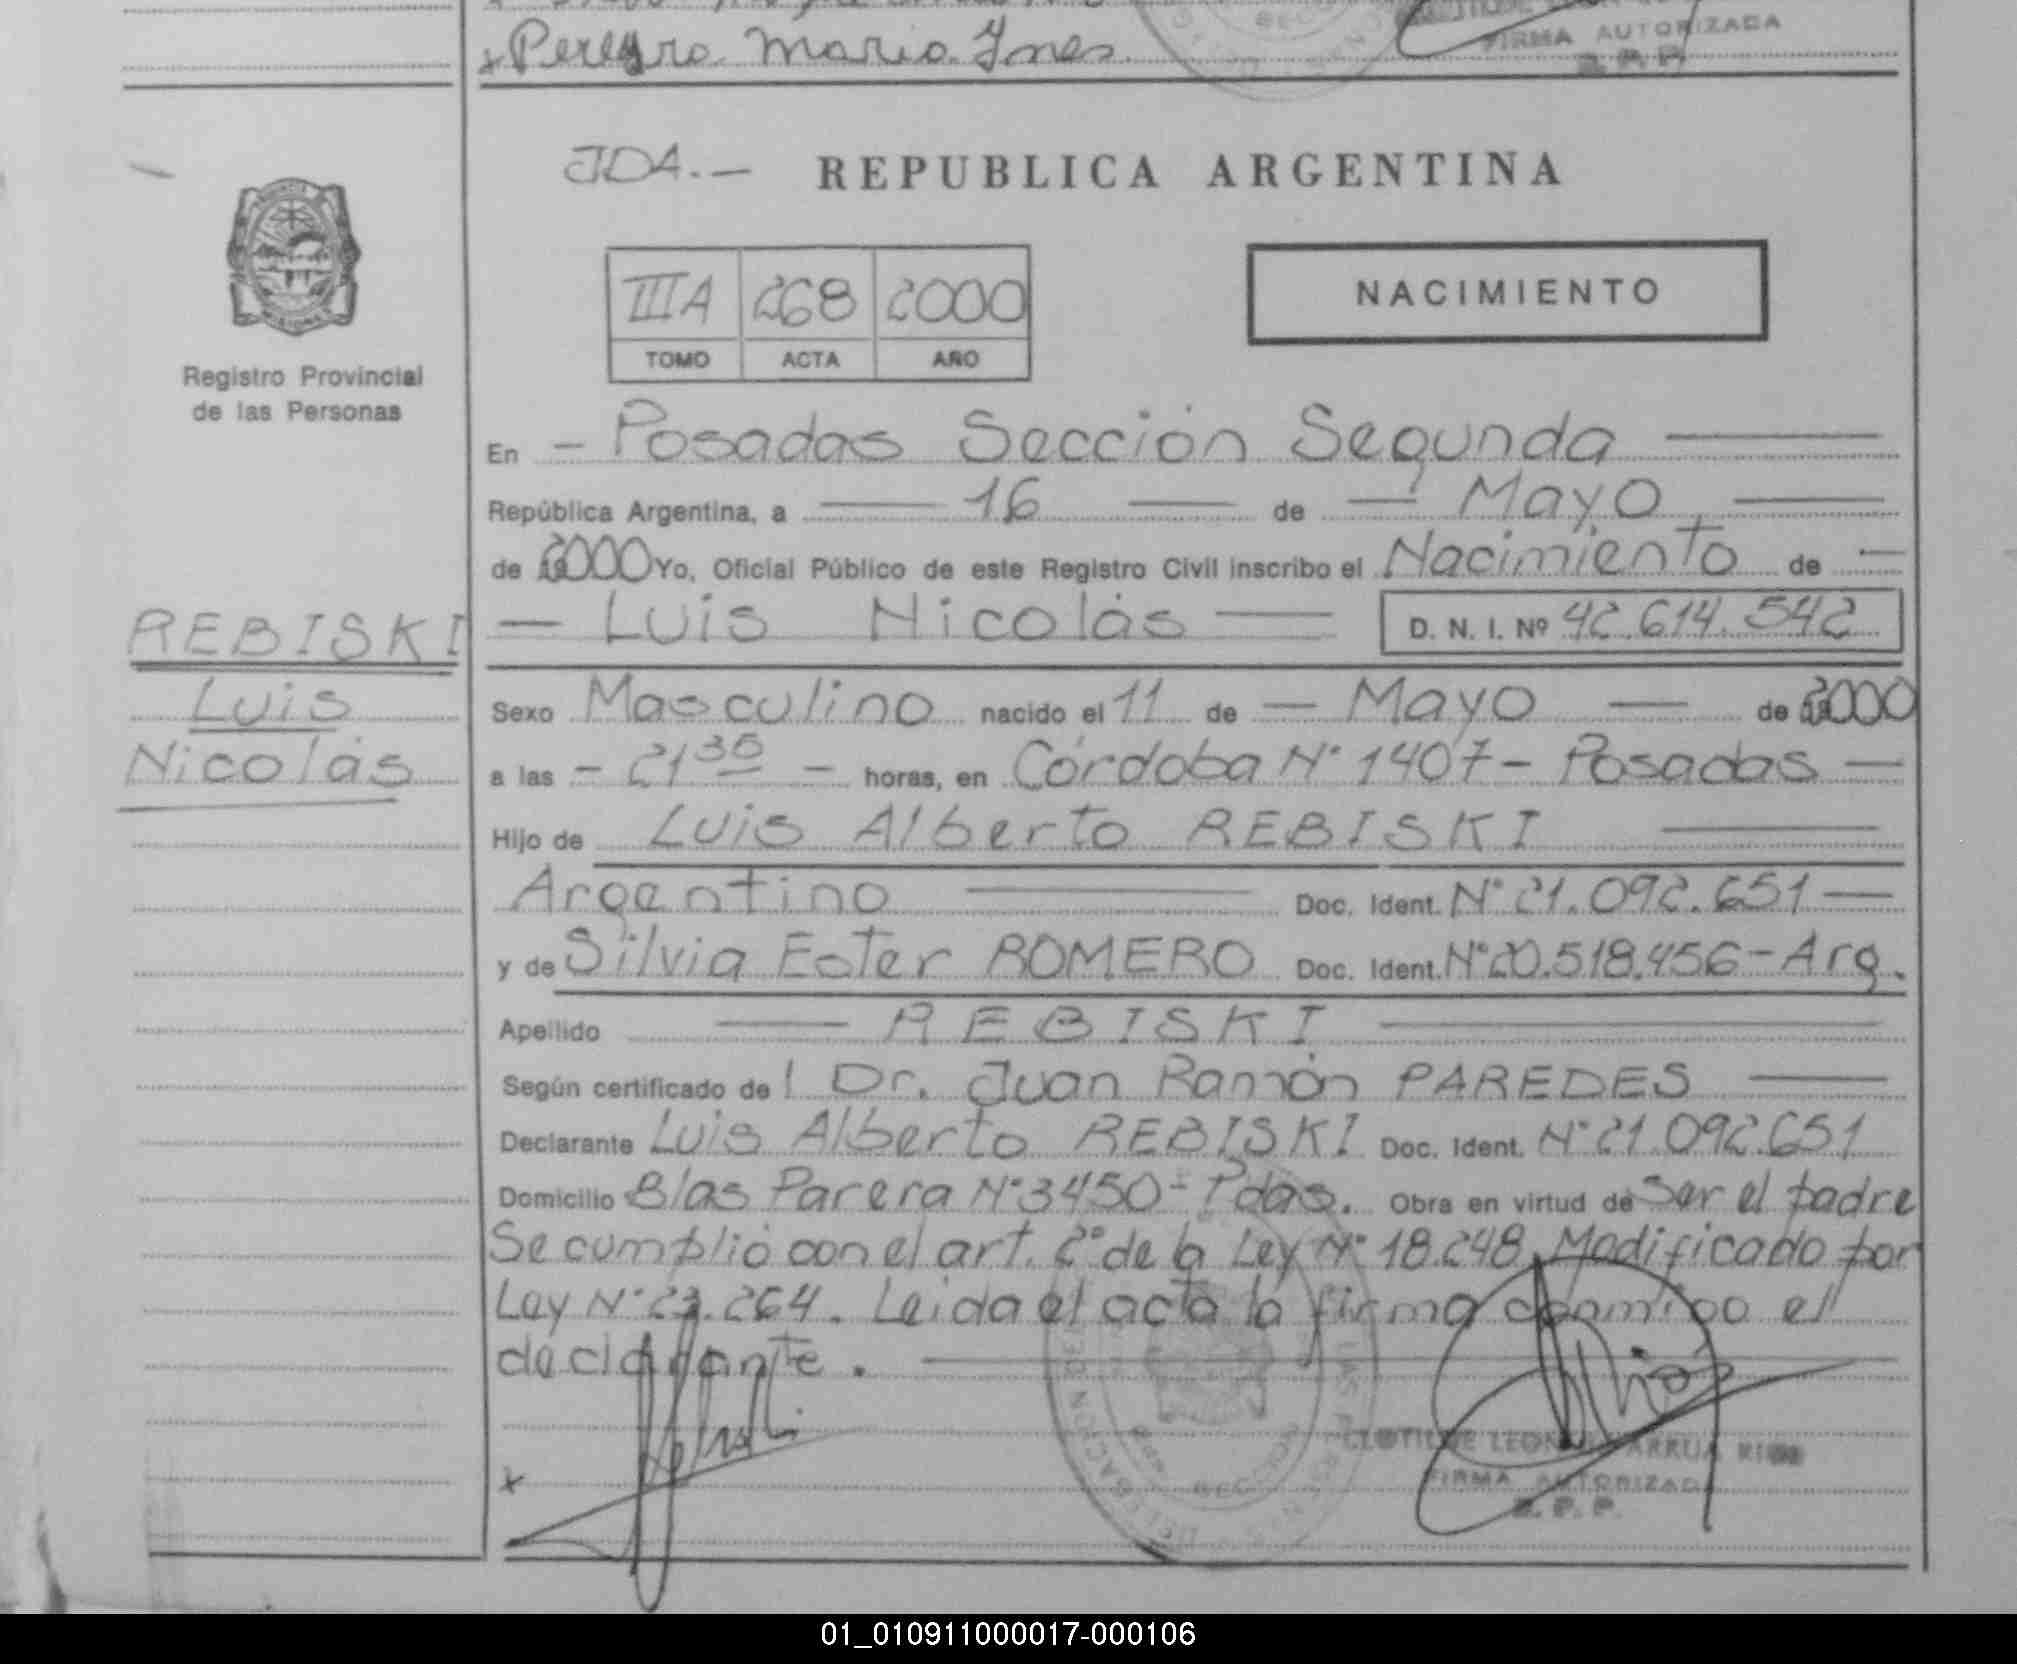 Pereyra Maria Ines
FIRMA AUTORIZADA
JDA.-
REPUBLICA ARGENTINA
IIIA 268 2000
TOMO ACTA AÑO
NACIMIENTO
Registro Provincial
de las Personas
En - Posadas Sección Segunda
República Argentina, a 16 de Mayo
de 2000 Yo, Oficial Público de este Registro Civil inscribo el Nacimiento de
REBISKI
Luis
Nicolás
Luis Nicolás D. N. I. Nº 42.614.542
Sexo Masculino nacido el 11 de Mayo de 2000
a las - 21 35 - horas, en Córdoba Nº 1407 - Posadas
Hijo de Luis Alberto REBISKI
Argentino Doc. Ident. Nº 21.092.651
y de Silvia Ester ROMERO Doc. Ident. Nº 20.518.456 - Arg.
Apellido REBISKI
Según certificado de l Dr. Juan Ramón PAREDES
Declarante Luis Alberto REBISKI Doc. Ident. Nº 21.092.651
Domicilio Blas Parera Nº 3450 - Pdas. Obra en virtud de Ser el padre
Se cumplió con el art. 2º de la Ley Nº 18.248 Modificado por
Ley Nº 23.264. Leida el acta la firma conmigo el
declarante.
FIRMA AUTORIZADA
R. P. P.
01_010911000017-000106